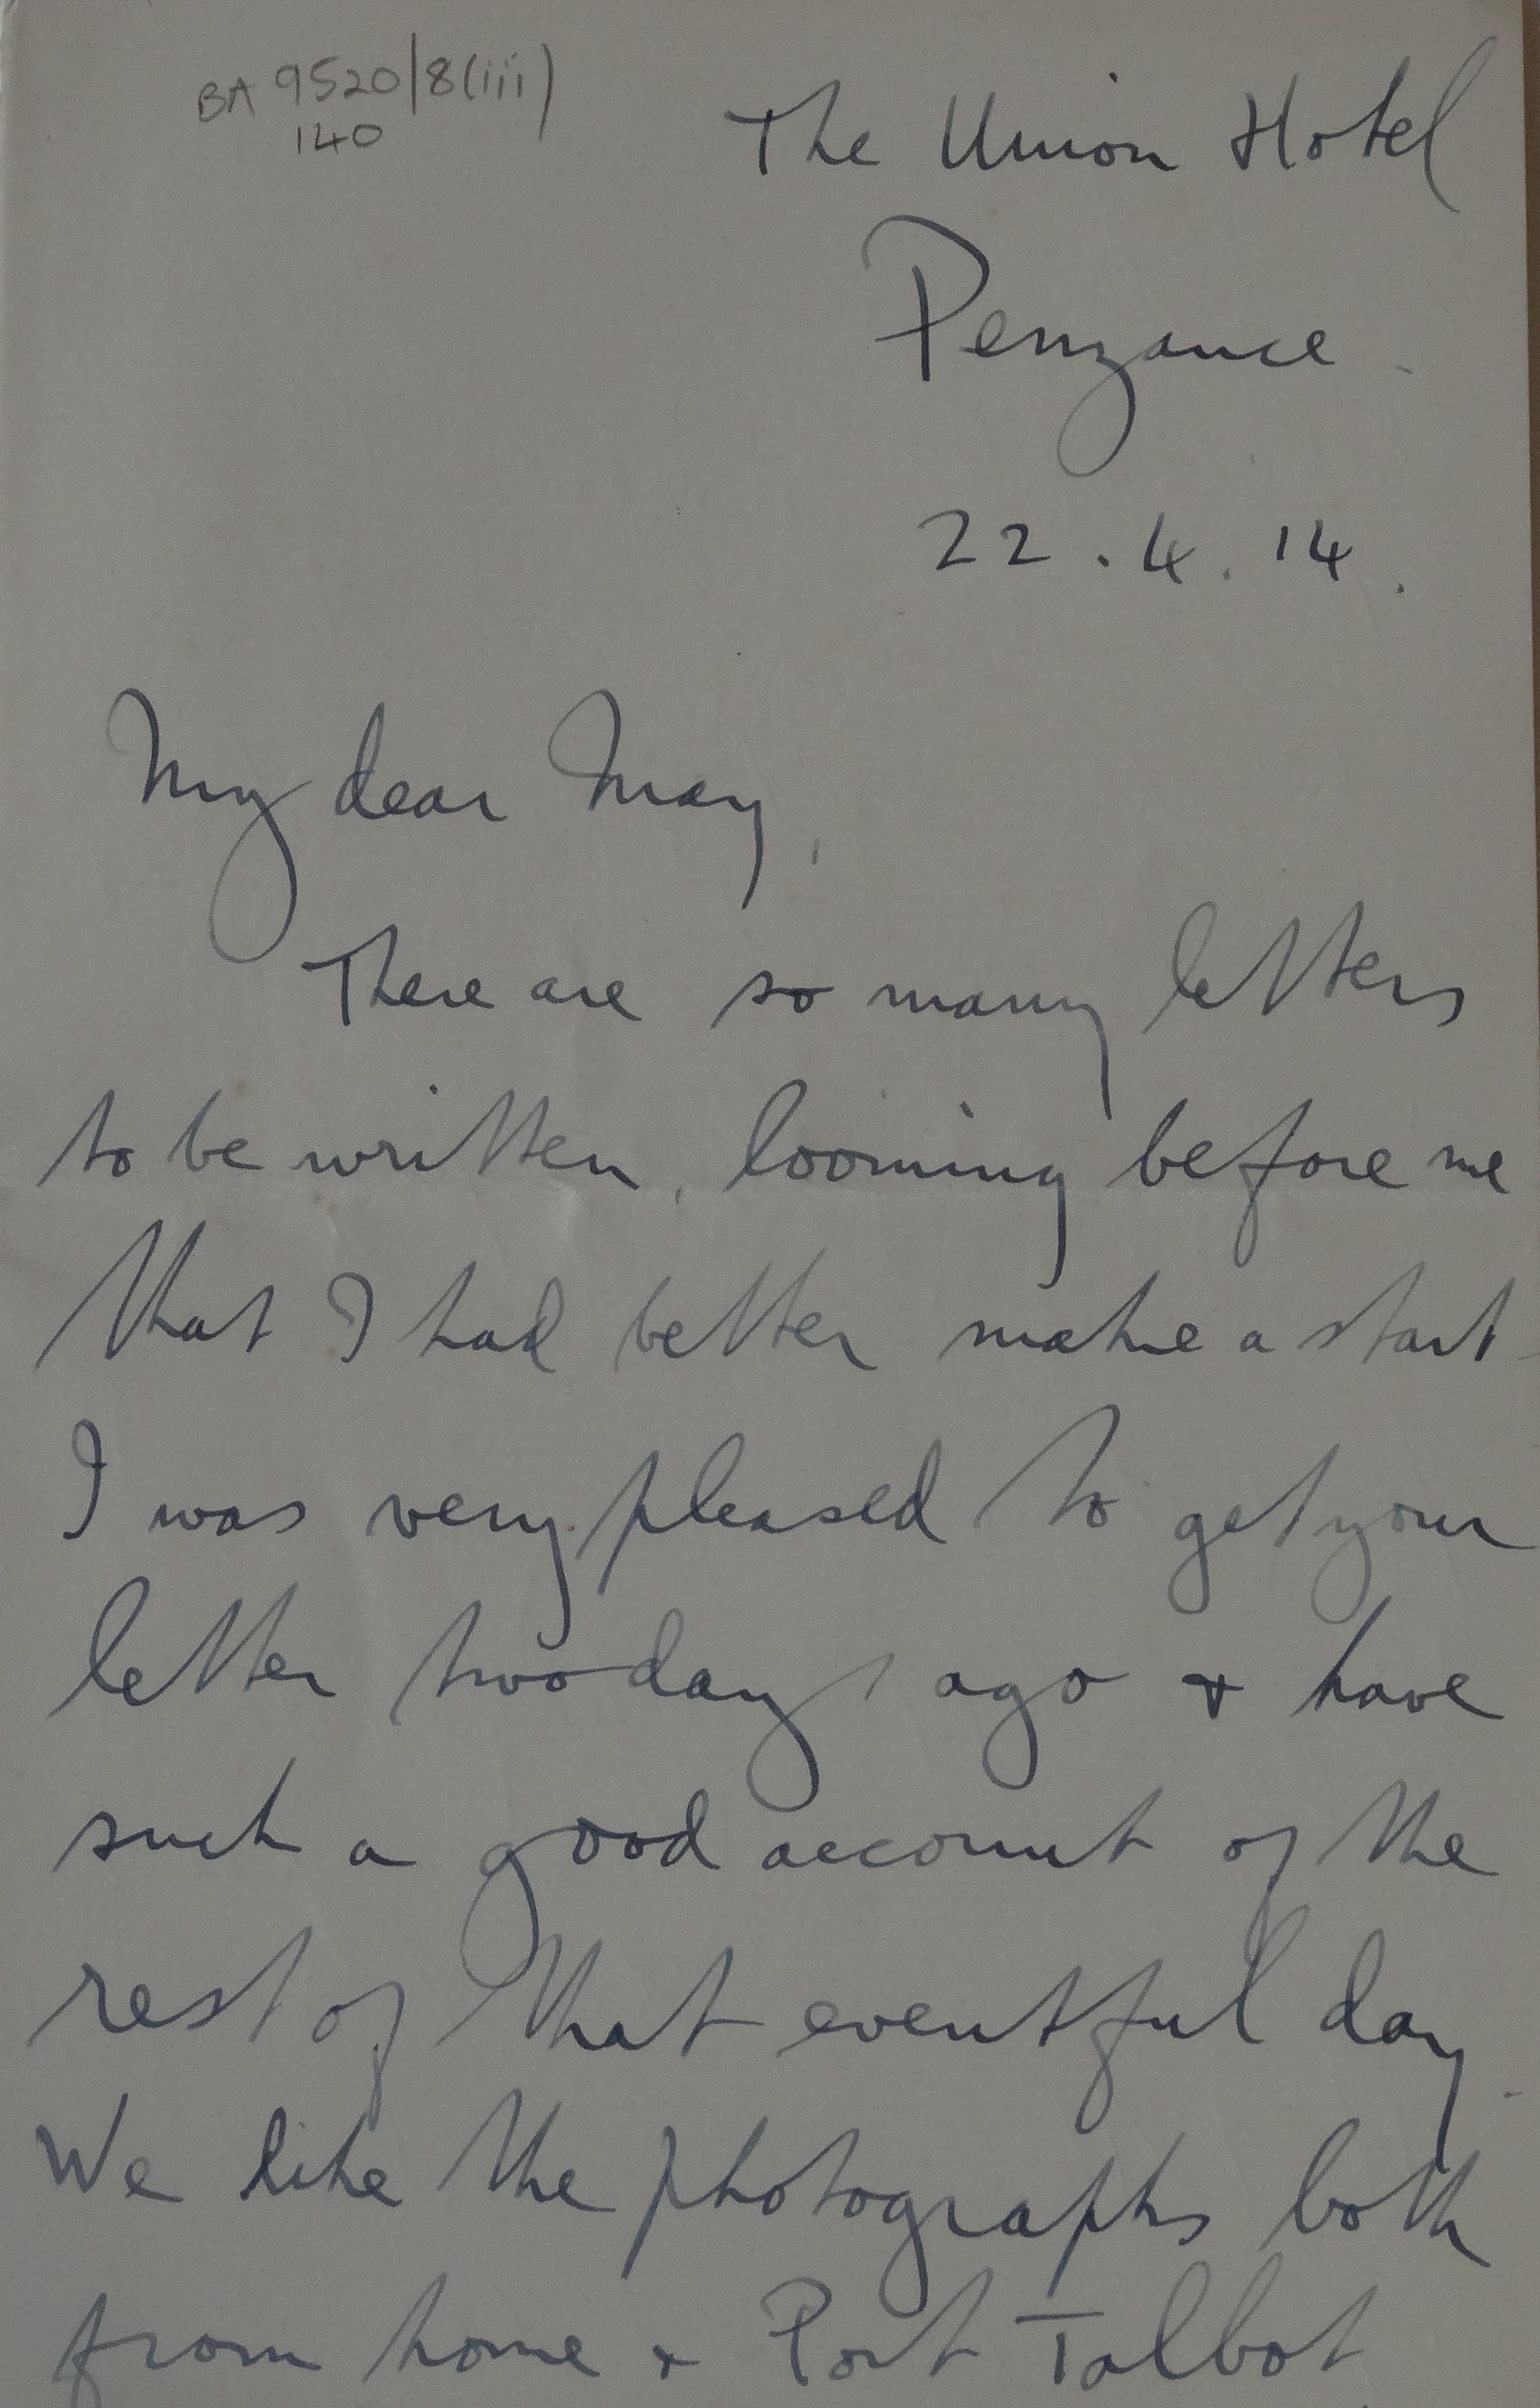 BA 9520/8(iii)
140
The Union Hotel
Penzance.
22.4.14.
My dear May,
There are so many letters
to be written, looming before me
that I had better make a start.
I was very pleased to get your
letter two days ago & have
such a good account of the
rest of that eventful day.
We like the photographs both
from home & Port Talbot.